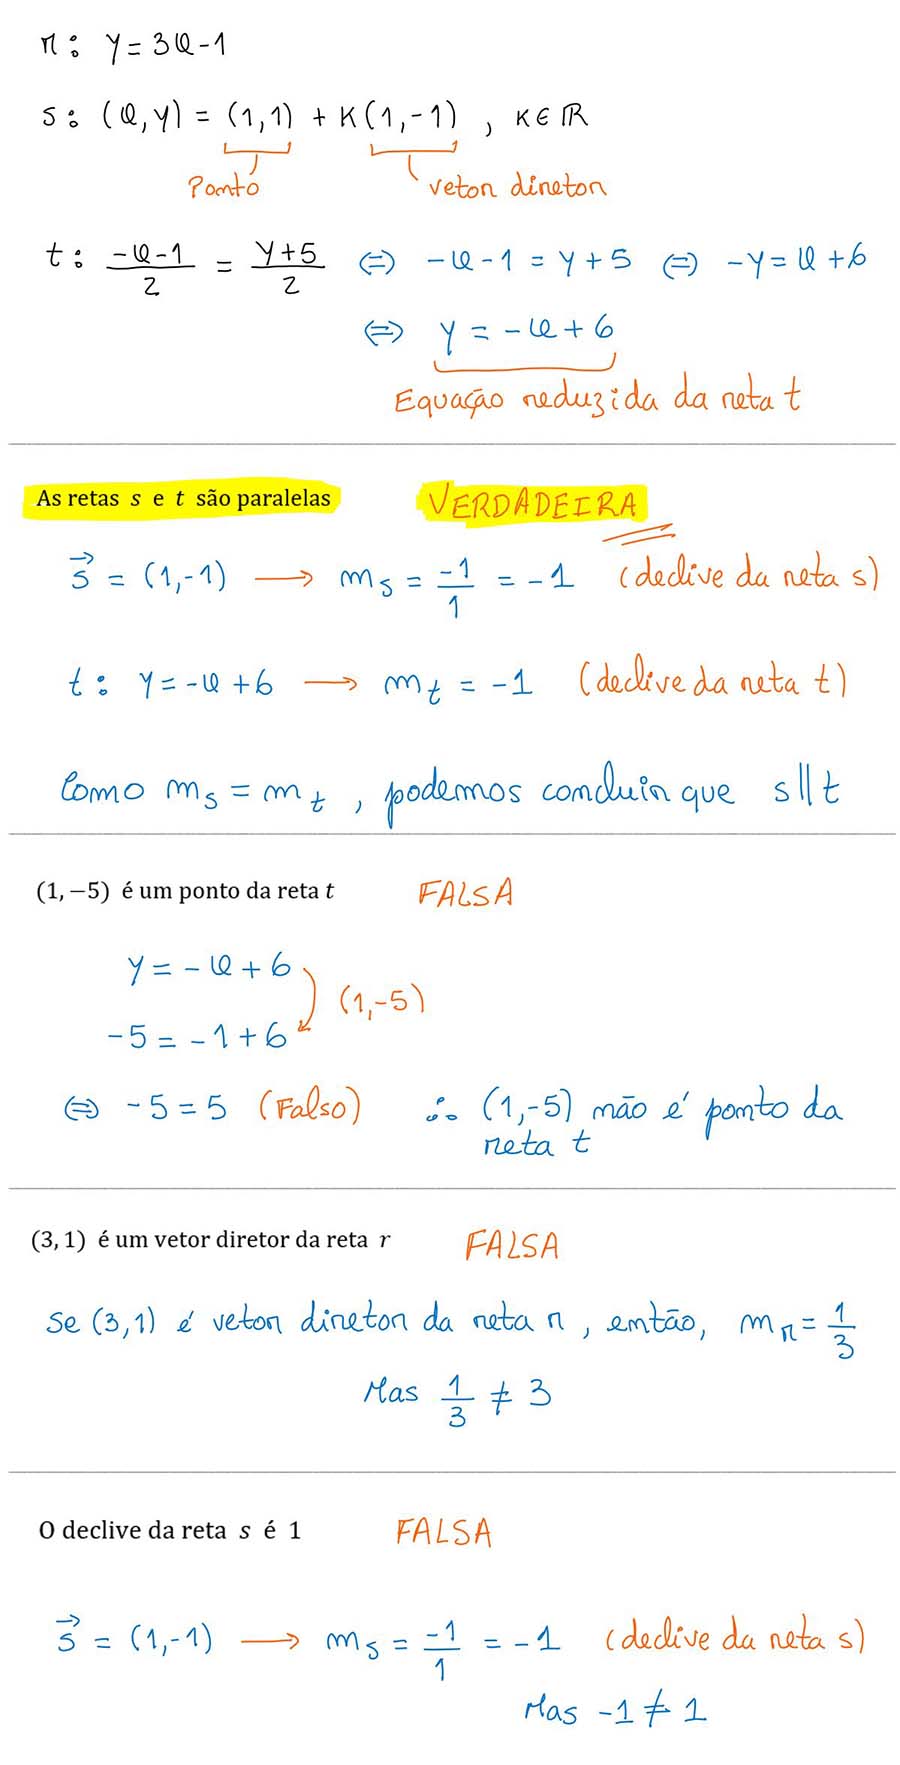 r: y = 3x - 1
s: (x, y) = (1, 1) + K(1, -1) , K ∈ ℝ
Ponto vetor diretor
t: (-x-1)/2 = (y+5)/2 ⇔ -x - 1 = y + 5 ⇔ -y = x + 6
⇔ y = -x + 6
Equação reduzida da reta t
As retas s e t são paralelas VERDADEIRA
s⃗ = (1, -1) ⟶ m_s = -1/1 = -1 (declive da reta s)
t: y = -x + 6 ⟶ m_t = -1 (declive da reta t)
Como m_s = m_t , podemos concluir que s || t
(1, −5) é um ponto da reta t FALSA
y = -x + 6
(1, -5)
-5 = -1 + 6
⇔ -5 = 5 (Falso) ∴ (1, -5) não é ponto da
reta t
(3, 1) é um vetor diretor da reta r FALSA
Se (3, 1) é vetor diretor da reta r , então, m_r = 1/3
Mas 1/3 ≠ 3
O declive da reta s é 1 FALSA
s⃗ = (1, -1) ⟶ m_s = -1/1 = -1 (declive da reta s)
Mas -1 ≠ 1